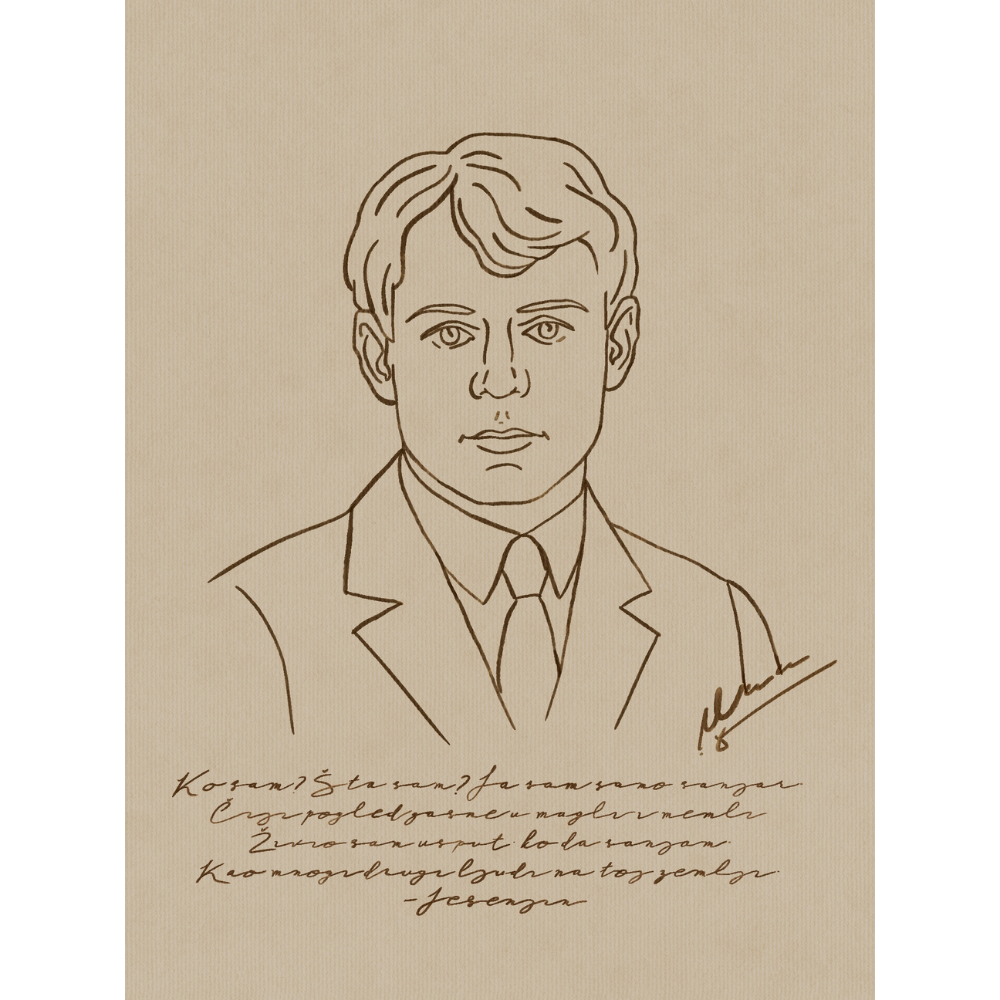 Ko sam? Šta sam? Ja sam samo sanjar
Čiji pogled gasne u magli i memli
Živio sam usput ko da sanjam
Kao mnogi drugi ljudi na toj zemlji
-Jesenjin